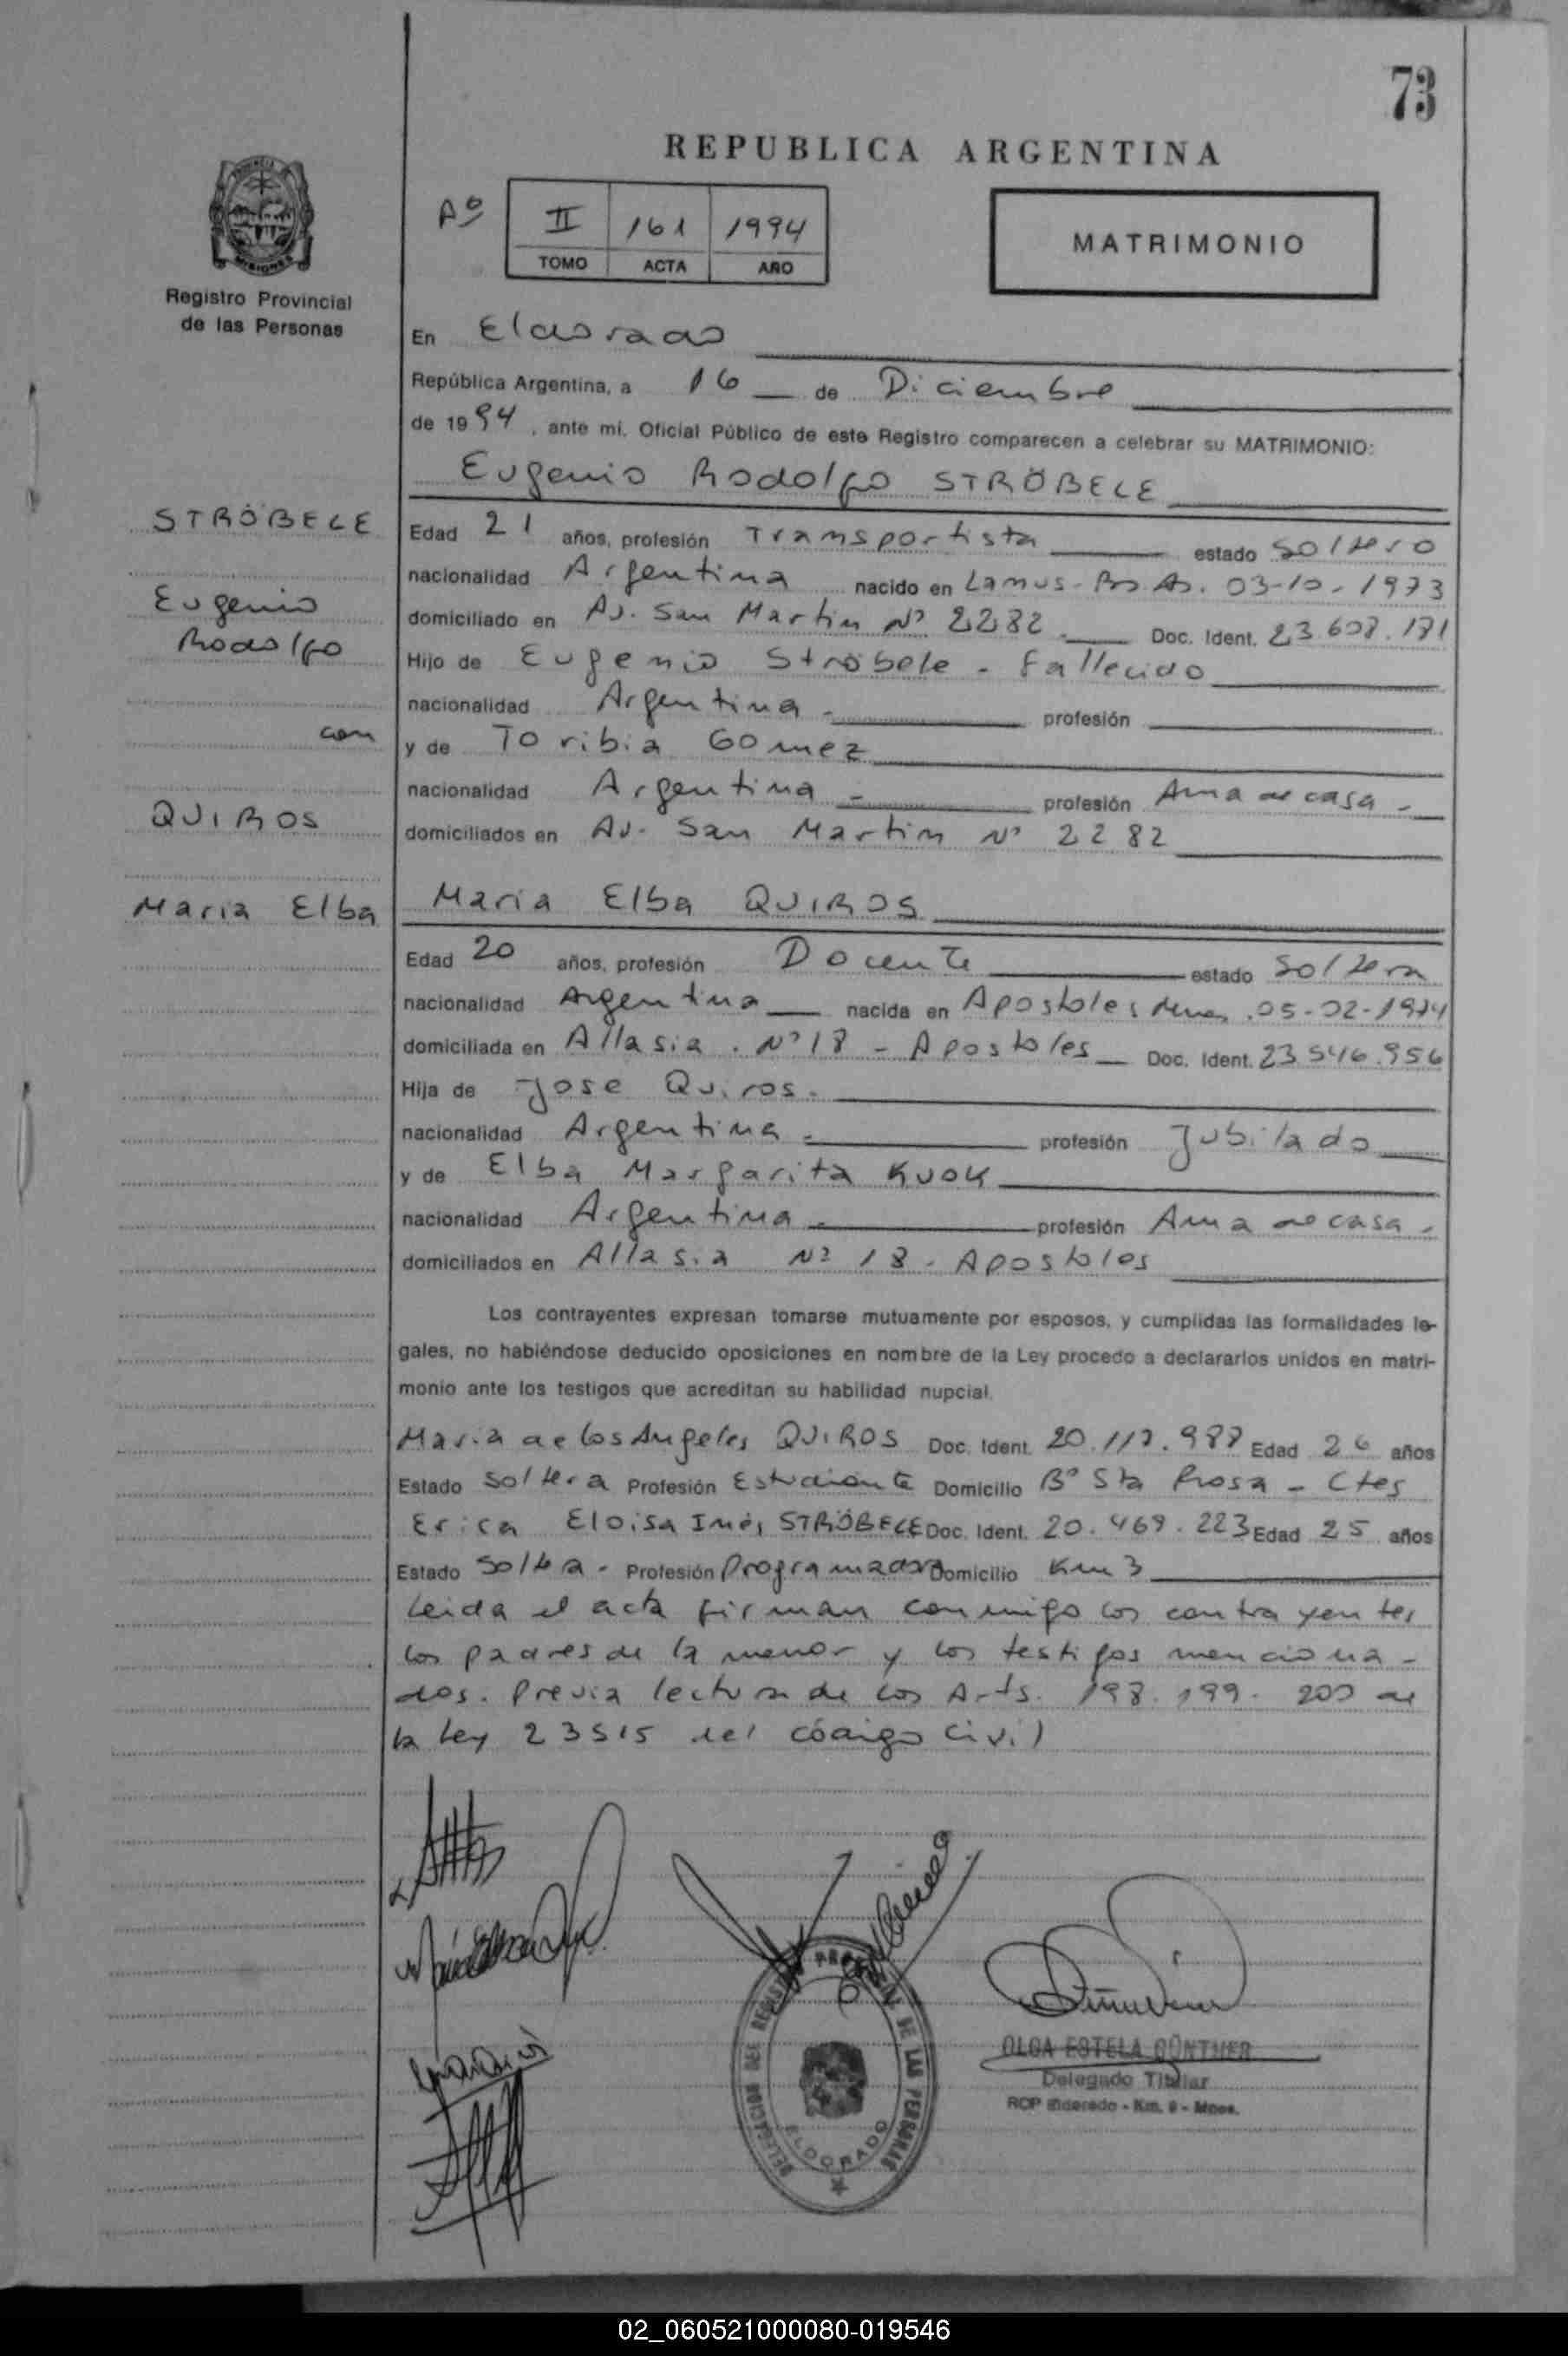 73
REPUBLICA ARGENTINA
Aº
II 161 1994
TOMO ACTA AÑO
MATRIMONIO
MISIONES
Registro Provincial
de las Personas
En Eldorado
República Argentina, a 16 de Diciembre
de 1994, ante mí, Oficial Público de este Registro comparecen a celebrar su MATRIMONIO:
Eugenio Rodolfo STRÖBELE
STRÖBELE
Eugenio
Rodolfo
con
QUIROS
Maria Elba
Edad 21 años, profesión Transportista estado Soltero
nacionalidad Argentina nacido en Lanus - Bs. As. 03-10-1973
domiciliado en Av. San Martin Nº 2282 Doc. Ident. 23.607.171
Hijo de Eugenio Ströbele - Fallecido
nacionalidad Argentina - profesión
y de Toribia Gomez
nacionalidad Argentina - profesión Ama de casa -
domiciliados en Av. San Martin Nº 2282
Maria Elba QUIROS
Edad 20 años, profesión Docente estado Soltera
nacionalidad Argentina nacida en Apostoles Mnes. 05-02-1974
domiciliada en Allasia . Nº 18 - Apostoles Doc. Ident. 23.546.956
Hija de Jose Quiros.
nacionalidad Argentina - profesión Jubilado
y de Elba Margarita KUOK
nacionalidad Argentina - profesión Ama de casa -
domiciliados en Allasia Nº 18 - Apostoles
Los contrayentes expresan tomarse mutuamente por esposos, y cumplidas las formalidades le-
gales, no habiéndose deducido oposiciones en nombre de la Ley procedo a declararlos unidos en matri-
monio ante los testigos que acreditan su habilidad nupcial.
Maria de los Angeles QUIROS Doc. Ident. 20.117.987 Edad 26 años
Estado Soltera Profesión Estudiante Domicilio Bº Sta Rosa - Ctes
Erica Eloisa Inés STRÖBELE Doc. Ident. 20.469.223 Edad 25 años
Estado Soltera - Profesión Programadora Domicilio Km 3
Leida el acta firman conmigo los contrayentes
los padres de la menor y los testigos menciona-
dos. Previa lectura de los Arts. 198. 199. 200 de
la Ley 23515 del código civil
DELEGACION DEL REGISTRO PROVINCIAL DE LAS PERSONAS
ELDORADO
OLGA ESTELA GÜNTHER
Delegado Titular
RCP Eldorado - Km. 9 - Mnes.
02_060521000080-019546